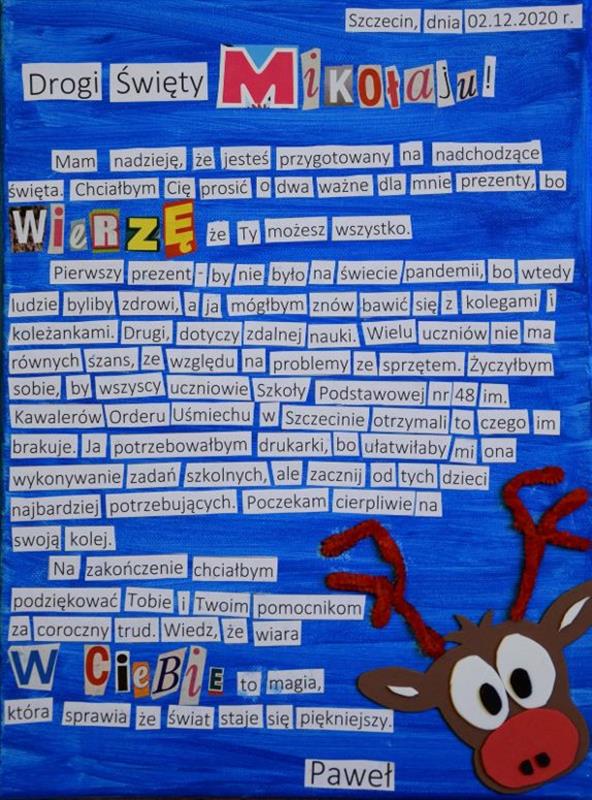 Szczecin, dnia 02.12.2020 r.
Drogi Święty Mikołaju!
Mam nadzieję, że jesteś przygotowany na nadchodzące
święta. Chciałbym Cię prosić o dwa ważne dla mnie prezenty, bo
WieRZĘ że Ty możesz wszystko.
Pierwszy prezent - by nie było na świecie pandemii, bo wtedy
ludzie byliby zdrowi, a ja mógłbym znów bawić się z kolegami i
koleżankami. Drugi, dotyczy zdalnej nauki. Wielu uczniów nie ma
równych szans, ze względu na problemy ze sprzętem. Życzyłbym
sobie, by wszyscy uczniowie Szkoły Podstawowej nr 48 im.
Kawalerów Orderu Uśmiechu w Szczecinie otrzymali to czego im
brakuje. Ja potrzebowałbym drukarki, bo ułatwiłaby mi ona
wykonywanie zadań szkolnych, ale zacznij od tych dzieci
najbardziej potrzebujących. Poczekam cierpliwie na
swoją kolej.
Na zakończenie chciałbym
podziękować Tobie i Twoim pomocnikom
za coroczny trud. Wiedz, że wiara
W CieBiE to magia,
która sprawia że świat staje się piękniejszy.
Paweł